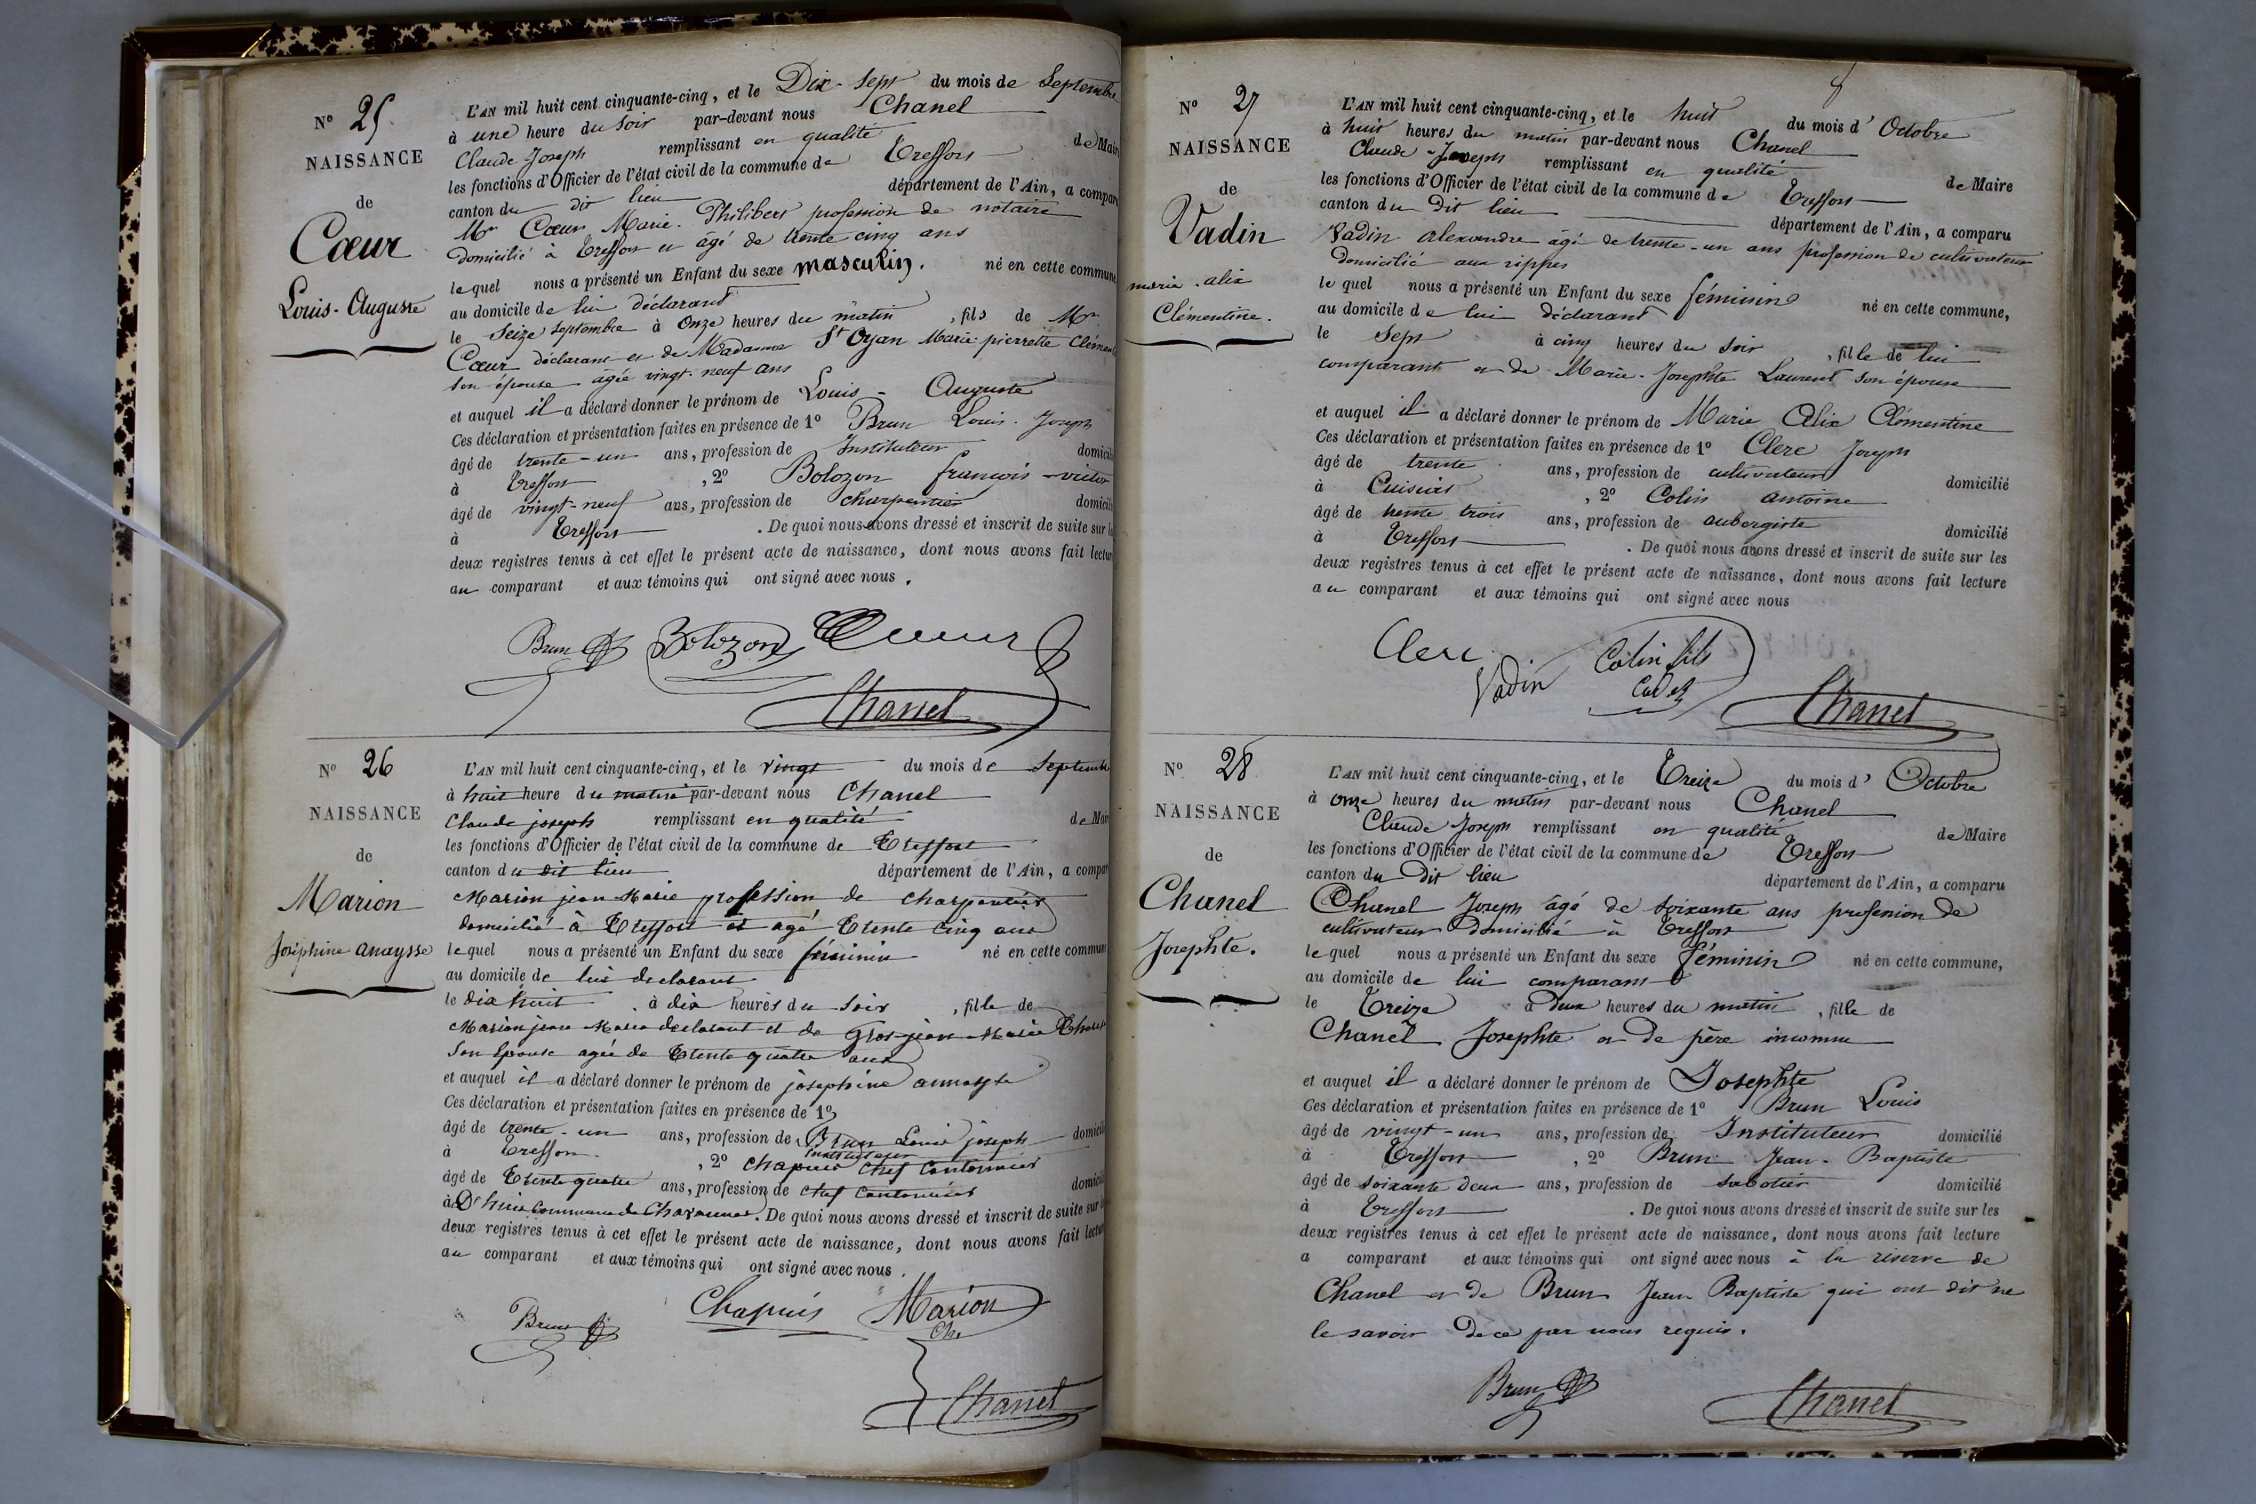 N° 25
NAISSANCE
de
Cœur
Louis-Auguste
L'AN mil huit cent cinquante-cinq, et le Dix-Sept du mois de Septembre
à une heure du Soir par-devant nous Chanel
Claude Joseph remplissant en qualité de Maire
les fonctions d'Officier de l'état civil de la commune de Treffort
canton du dit lieu département de l'Ain, a comparu
Mr Cœur Marie Philibert profession de notaire
domicilié à Treffort et âgé de trente cinq ans
lequel nous a présenté un Enfant du sexe masculin. né en cette commune
au domicile de lui déclarant
le Seize Septembre à Onze heures du matin, fils de Mr
Cœur déclarant et de Madame St Oyan Marie pierrette Clémen
son épouse âgée vingt-neuf ans
et auquel il a déclaré donner le prénom de Louis-Auguste
Ces déclaration et présentation faites en présence de 1° Brun Louis Joseph
âgé de trente-un ans, profession de Instituteur domicilié
à Treffort, 2° Bolozon françois-victor
âgé de vingt-neuf ans, profession de charpentier domicilié
à Treffort. De quoi nous avons dressé et inscrit de suite sur les
deux registres tenus à cet effet le présent acte de naissance, dont nous avons fait lecture
au comparant et aux témoins qui ont signé avec nous.
Brun Bolozon Cœur
Chanel
N° 26
NAISSANCE
de
Marion
Joséphine anaysse
L'AN mil huit cent cinquante-cinq, et le vingt du mois de Septembre
à huit heure du matin par-devant nous Chanel
Claude joseph remplissant en qualité de Maire
les fonctions d'Officier de l'état civil de la commune de Treffort
canton du dit lieu département de l'Ain, a comparu
Marion jean Marie profession de charpentier
domicilié à Treffort et agé trente cinq ans
lequel nous a présenté un Enfant du sexe féminin né en cette commune
au domicile de lui declarant
le dix huit à dix heures du soir, fille de
Marion jean Marie declarant et de Gros-jean Marie
Son Epouse agée de trente quatre ans
et auquel il a déclaré donner le prénom de josephine
Ces déclaration et présentation faites en présence de 1°
âgé de trente-un ans, profession de Brun Louis joseph domicilié
instituteur
à Treffort, 2° chapuis chef cantonnier
âgé de trente quatre ans, profession de chef cantonnier domicilié
à commune de Chavannes. De quoi nous avons dressé et inscrit de suite sur les
deux registres tenus à cet effet le présent acte de naissance, dont nous avons fait lecture
au comparant et aux témoins qui ont signé avec nous.
Brun Chapuis Marion
Chanel
8
N° 27
NAISSANCE
de
Vadin
marie alix
Clémentine.
L'AN mil huit cent cinquante-cinq, et le huit du mois d'Octobre
à huit heures du matin par-devant nous Chanel
Claude-Joseph remplissant en qualité de Maire
les fonctions d'Officier de l'état civil de la commune de Treffort
canton du Dit lieu département de l'Ain, a comparu
Vadin alexandre âgé de trente-un ans profession de cultivateur
domicilié aux rippes
lequel nous a présenté un Enfant du sexe féminin né en cette commune,
au domicile de lui déclarant
le Sept à cinq heures du soir, fille de lui
comparant et de Marie-Josephte Laurent son épouse
et auquel il a déclaré donner le prénom de Marie Alix Clémentine
Ces déclaration et présentation faites en présence de 1° Clerc Joseph
âgé de trente ans, profession de cultivateur domicilié
à Cuisiat, 2° Colin antoine
âgé de trente trois ans, profession de aubergiste domicilié
à Treffort. De quoi nous avons dressé et inscrit de suite sur les
deux registres tenus à cet effet le présent acte de naissance, dont nous avons fait lecture
au comparant et aux témoins qui ont signé avec nous
Clerc Vadin Colin fils
cadet
Chanel
N° 28
NAISSANCE
de
Chanel
Josephte.
L'AN mil huit cent cinquante-cinq, et le Treize du mois d'Octobre
à onze heures du matin par-devant nous Chanel
Claude Joseph remplissant en qualité de Maire
les fonctions d'Officier de l'état civil de la commune de Treffort
canton du Dit lieu département de l'Ain, a comparu
Chanel Joseph âgé de soixante ans profession de
cultivateur domicilié à Treffort
lequel nous a présenté un Enfant du sexe féminin né en cette commune,
au domicile de lui comparant
le Treize à deux heures du matin, fille de
Chanel Josephte et de père inconnu
et auquel il a déclaré donner le prénom de Josephte
Ces déclaration et présentation faites en présence de 1° Brun Louis
âgé de vingt-un ans, profession de Instituteur domicilié
à Treffort, 2° Brun Jean-Baptiste
âgé de soixante deux ans, profession de sabotier domicilié
à Treffort. De quoi nous avons dressé et inscrit de suite sur les
deux registres tenus à cet effet le présent acte de naissance, dont nous avons fait lecture
a comparant et aux témoins qui ont signé avec nous à la réserve de
Chanel et de Brun Jean Baptiste qui ont dit ne
le savoir de ce par nous requis.
Brun Chanel